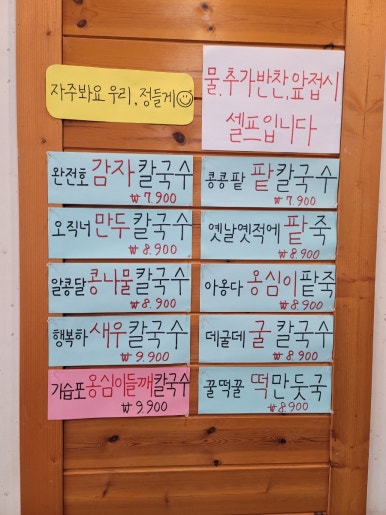 자주봐요 우리, 정들게
물, 추가반찬, 앞접시
셀프입니다
완전호 감자 칼국수
₩7,900
콩콩팥 팥 칼국수
₩7,900
오직너 만두 칼국수
₩8,900
옛날옛적에 팥죽
₩8.900
알콩달 콩나물 칼국수
₩8.900
아웅다 옹심이 팥죽
₩8,900
행복하 새우 칼국수
₩9,900
데굴데 굴 칼국수
₩8,900
가슴포 옹심이들깨 칼국수
₩9,900
꿀떡꿀 떡만둣국
₩8,900